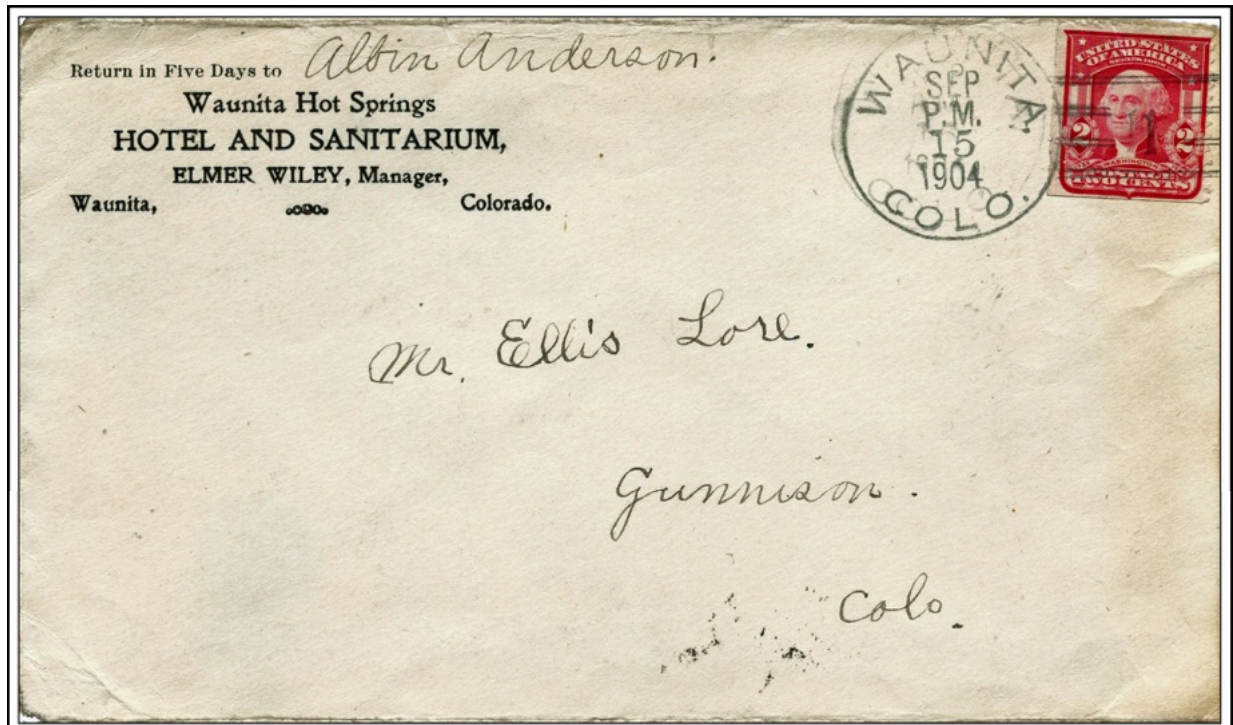 Return in Five Days to Albin Anderson.
Waunita Hot Springs
HOTEL AND SANITARIUM,
ELMER WILEY, Manager,
Waunita, Colorado.
WAUNITA
SEP
P.M.
15
1904
COLO.
UNITED STATES
OF AMERICA
SERIES 1902
2 2
WASHINGTON
TWO CENTS
1
Mr. Ellis Lore.
Gunnison.
Colo.